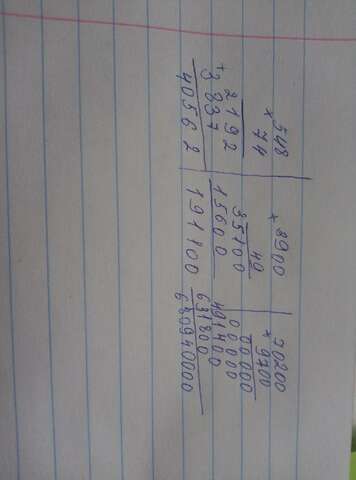 548
× 74
2192
+ 3837
40562
× 3900
49
35100
15600
191100
70200
× 9700
00000
00000
491400
631800
680940000